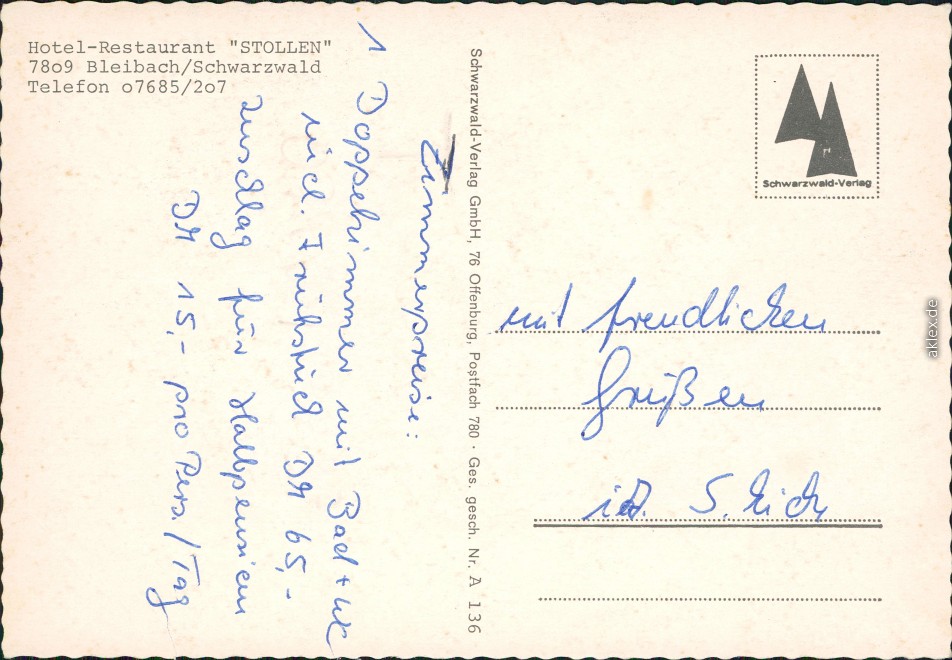 Hotel-Restaurant "STOLLEN"
78o9 Bleibach/Schwarzwald
Telefon o7685/2o7
Zimmerpreise:
1 Doppelzimmer mit Bad + WC
incl. Frühstück DM 65,-
Zuschlag für Halbpension
DM 15,- pro Pers./Tag
Schwarzwald-Verlag GmbH, 76 Offenburg, Postfach 780 · Ges. gesch. Nr. A 136
Schwarzwald-Verlag
mit freundlichen
Grüßen
S.
akpool.de